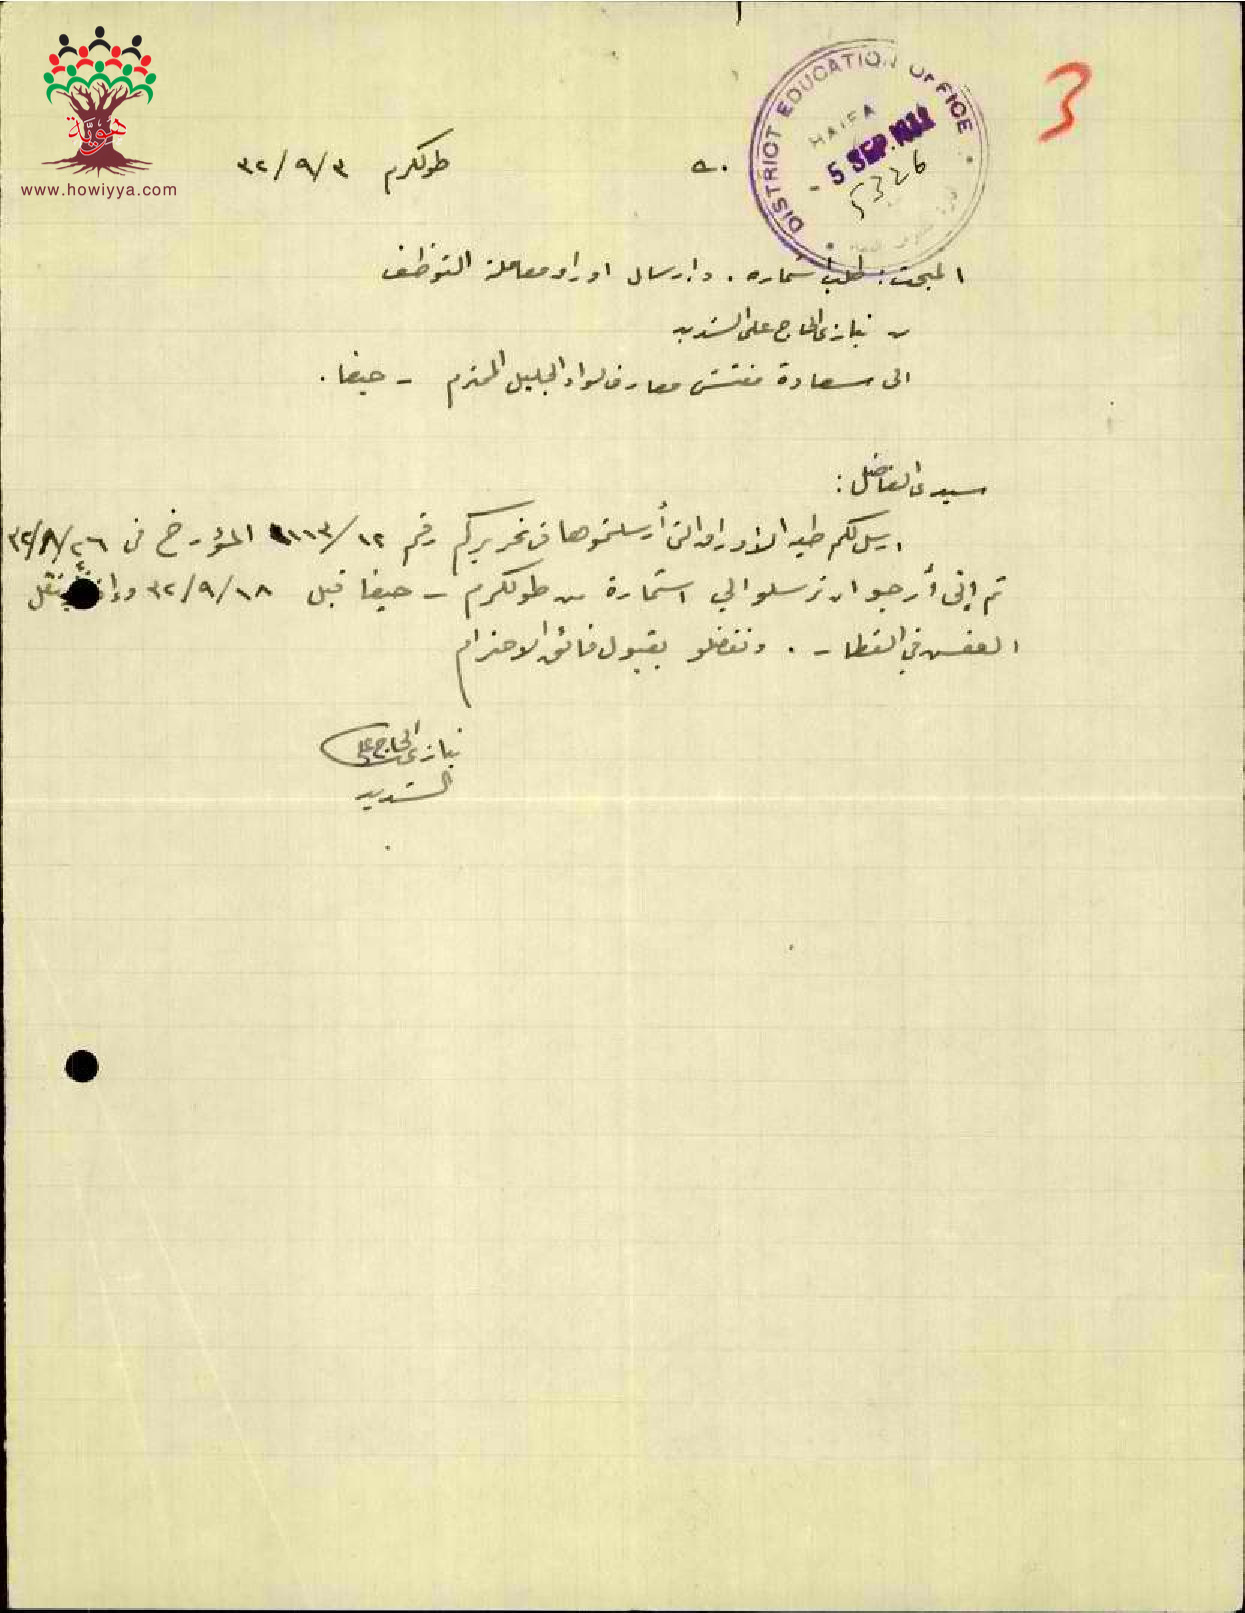 هويّة
www.howiyya.com
DISTRICT EDUCATION OFFICE
HAIFA
- 5 SEP. 1932
5326
3
طولكرم ٣٢/٩/٣
المبحث: طلب استماره. وارسال اوراق معاملة التوظف
من نيازي الحاج علي الشديد
الى سعادة مفتش معارف لواء الجليل المحترم - حيفا.
سيدي الفاضل:
ارسل لكم طيه الاوراق التي أرسلتموها في تحريركم رقم ١١١٣/١٢ المؤرخ في ٣٢/٨/٢٦
ثم إني أرجو ان ترسلوا لي استمارة من طولكرم - حيفا قبل ٣٢/٩/١٨
العفش في القطار. وتفضلو بقبول فائق الاحترام
نيازي الحاج علي
الشديد